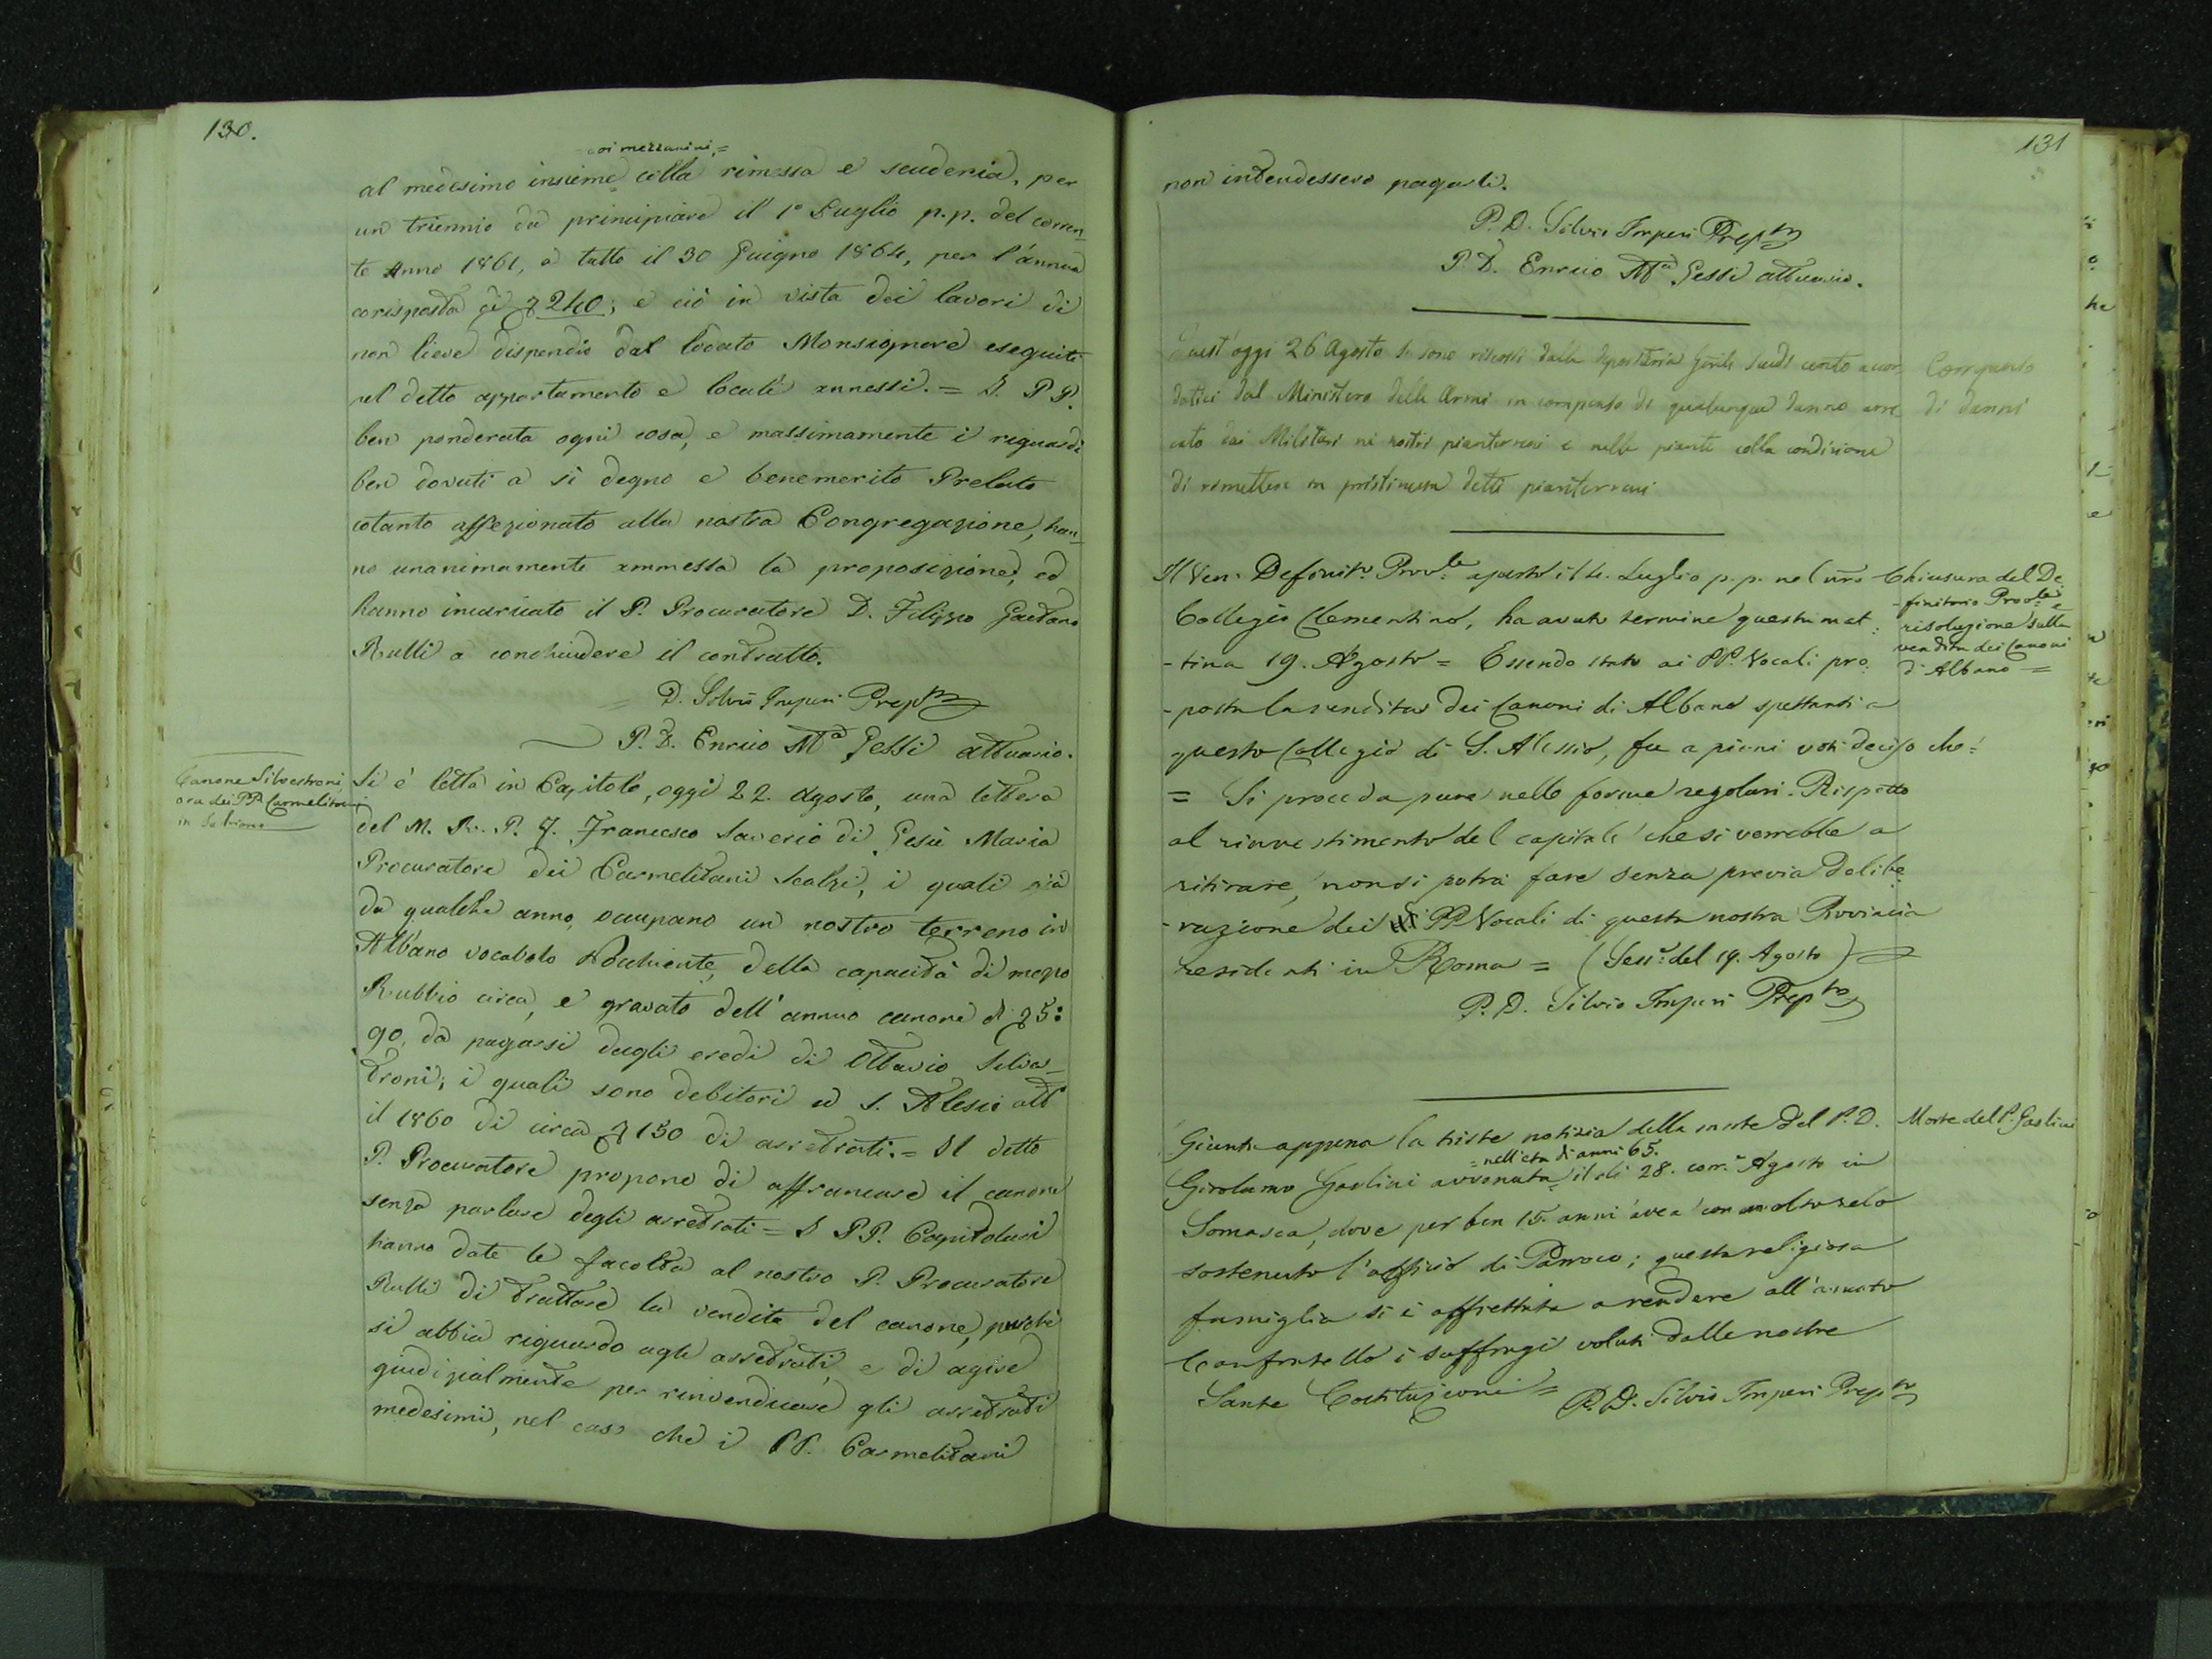 130.
coi mezzanini,=
al medesimo insieme colla rimessa e scuderia, per
un triennio da principiare il 1° Luglio p.p. del corren_
te Anno 1861, a tutto il 30 Giugno 1864, per l'annua
corisposta di 240; e ciò in vista dei lavori di
non lieve dispendio dal lodato Monsignore eseguiti
nel detto appartamento e locali annessi. = I. P P.
ben ponderata ogni cosa, e massimamente i riguardi
ben dovuti a sì degno e benemerito Prelato
cotanto affezionato alla nostra Congregazione, han_
no unanimamente ammessa la proposizione, ed
hanno incaricato il P. Procuratore D. Filippo Gaetano
Rulli a conchiudere il contratto.
= D. Silvio Imperi Prepto
P. D. Enrico Ma Gessi attuario.
Canone Silvestroni
ora dei PP. Carmelitani
in
Si è letta in Capitolo, oggi 22 Agosto, una lettera
del M. R. P. F. Francesco Saverio di Gesù Maria
Procuratore dei Carmelitani Scalzi, i quali già
da qualche anno, occupano un nostro terreno in
Albano vocabolo della capacità di mezzo
Rubbio circa, e gravato dell'annuo canone di 5:
90, da pagarsi dagli eredi di Ottavio Silves_
troni; i quali sono debitori a S. Alesio all
il 1860 di circa 130 di arretrati. = Il detto
P. Procuratore propone di affrancare il canone
senza parlare degli arretrati = I PP. Capitolari
hanno date le facoltà al nostro P. Procuratore
Rulli di trattare la vendita del canone, purchè
si abbia riguardo agli arretrati, e di agire
giudizialmente per rinvendicare gli arretrati
medesimi, nel caso che i PP. Carmelitani
131
non intendessero pagarli.
P. D. Silvio Imperi Prepto
P. D. Enrico Ma Gessi attuario.
Quest'oggi 26 Agosto si sono riscossi dalla depositeria Genle scudi cento accor_
datici dal Ministero delle Armi in compenso di qualunque danno arre
cato dai Militari ni nostri pianterreni e nelle piante colla condizione
di rimettere in pristinum detti pianterreni
Compenso
di danni
Il Ven. Definito. Provle. aperto il 4. Luglio p.p. nel nro
Collegio Clementino, ha avuto termine questa mat:
-tina 19. Agosto = Essendo stato ai PP. Vocali pro:
-posta la vendita dei Canoni di Albano spettanti a
questo Collegio di S. Alessio, fu a pieni voti deciso che:
= Si proceda pure nelle forme regolari. Rispetto
al rinvestimento del capitale che si verrebbe a
ritirare, non si potrà fare senza previa delibe
-razione dei PP. Vocali di questa nostra Provincia
residenti in Roma = (Sess.e del 19. Agosto)
P. D. Silvio Imperi Prepto
Chiusura del De
-finitorio Provle e
risoluzione sulla
vendita dei Canoni
di Albano =
Giunta appena la triste notizia della morte del P. D.
= nell'età di anni 65.
Girolamo Gaslini avvenuta il dì 28. corr.e Agosto in
Somasca, dove per ben 15. anni avea con molto zelo
sostenuto l'officio di Parroco; questa religiosa
famiglia si è affrettata a rendere all'amato
Confratello i suffragi voluti dalle nostre
Sante Costituzioni = P. D. Silvio Imperi Prepto
Morte del P. Gaslini